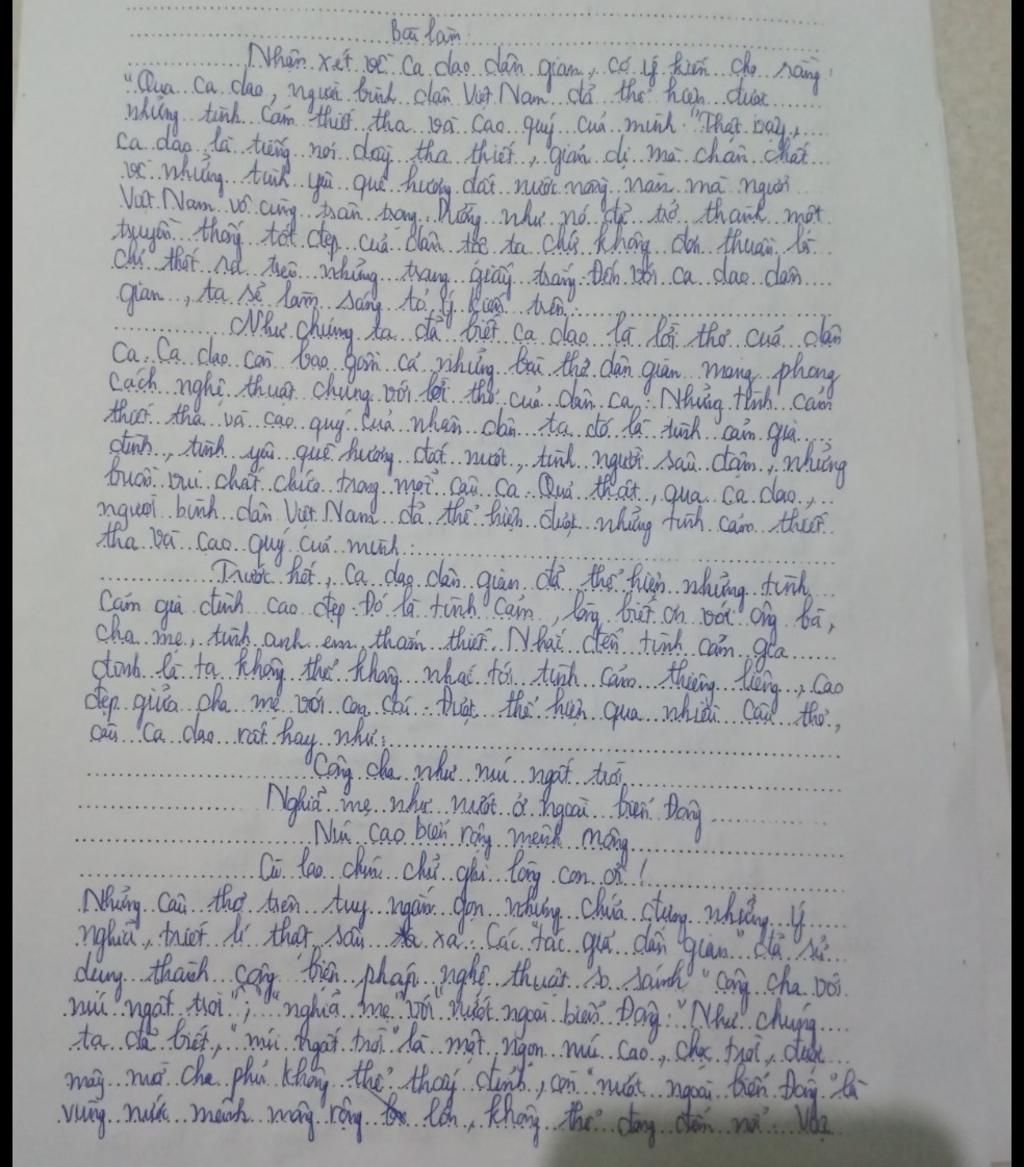 Bài làm
Nhận xét về ca dao dân gian, có ý kiến cho rằng:
"Qua ca dao, người bình dân Việt Nam đã thể hiện được
những tình cảm thiết tha và cao quý của mình." Thật vậy,
ca dao là tiếng nói đầy tha thiết, giản dị mà chân chất
về những tình yêu quê hương đất nước nồng nàn mà người
Việt Nam vô cùng trân trọng. Dường như nó đã trở thành một
truyền thống tốt đẹp của dân tộc ta chứ không đơn thuần là
chỉ thốt ra trên những trang giấy trắng. Đến với ca dao dân
gian, ta sẽ làm sáng tỏ ý kiến trên.
Như chúng ta đã biết ca dao là lời thơ của dân
ca. Ca dao còn bao gồm cả những bài thơ dân gian mang phong
cách nghệ thuật chung với lời thơ của dân ca. Những tình cảm
thiết tha và cao quý của nhân dân ta đó là tình cảm gia
đình, tình yêu quê hương đất nướt, tình người sâu đậm, những
buồn vui chất chứa trong mọi câu ca. Quả thật, qua ca dao,
người bình dân Việt Nam đã thể hiện đượt những tình cảm thiết
tha và cao quý của mình.
Trước hết, ca dao dân gian đã thể hiện những tình
cảm gia đình cao đẹp. Đó là tình cảm, lòng biết ơn với ông bà,
cha mẹ, tình anh em thắm thiết. Nhắc đến tình cảm gia
đình là ta không thể không nhắc tới tình cảm thiêng liêng, cao
đẹp giữa cha mẹ với con cái. Đượt thể hiện qua nhiều câu thơ,
câu ca dao rất hay như:
Công cha như núi ngất trời
Nghĩa mẹ như nướt ở ngoài biển Đông
Núi cao biển rộng mênh mông
Cù lao chín chữ ghi lòng con ơi!
Những câu thơ trên tuy ngắn gọn nhưng chứa đựng những ý
nghĩa, triết lí thật sâu xa. Các "tác giả dân gian" đã sử
dụng thành công biện pháp nghệ thuật so sánh "công cha với
núi ngất trời"; "nghĩa mẹ" với "nướt ngoài biển Đông." Như chúng
ta đã biết, "núi ngất trời" là một ngọn núi cao, chọc trời, được
mây mờ che phủ không thể thấy đỉnh, còn "nướt ngoài biển Đông" là
vùng nước mênh mông rộng lớn, không thể đong đếm nổi. Vừa